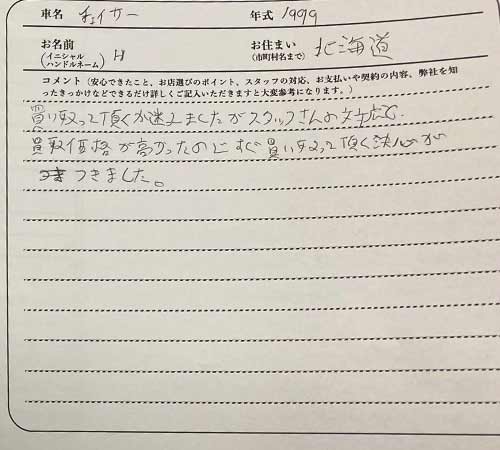 車名 チェイサー 年式 1999
お名前 (イニシャル ハンドルネーム) H お住まい (市町村名まで) 北海道
コメント（安心できたこと、お店選びのポイント、スタッフの対応、お支払いや契約の内容、弊社を知
ったきっかけなどできるだけ詳しくご記入いただきますと大変参考になります。）
買い取って頂くか迷いましたがスタッフさんの対応や
買取価格が高かったのにすぐ買い取って頂く決心が
つきました。